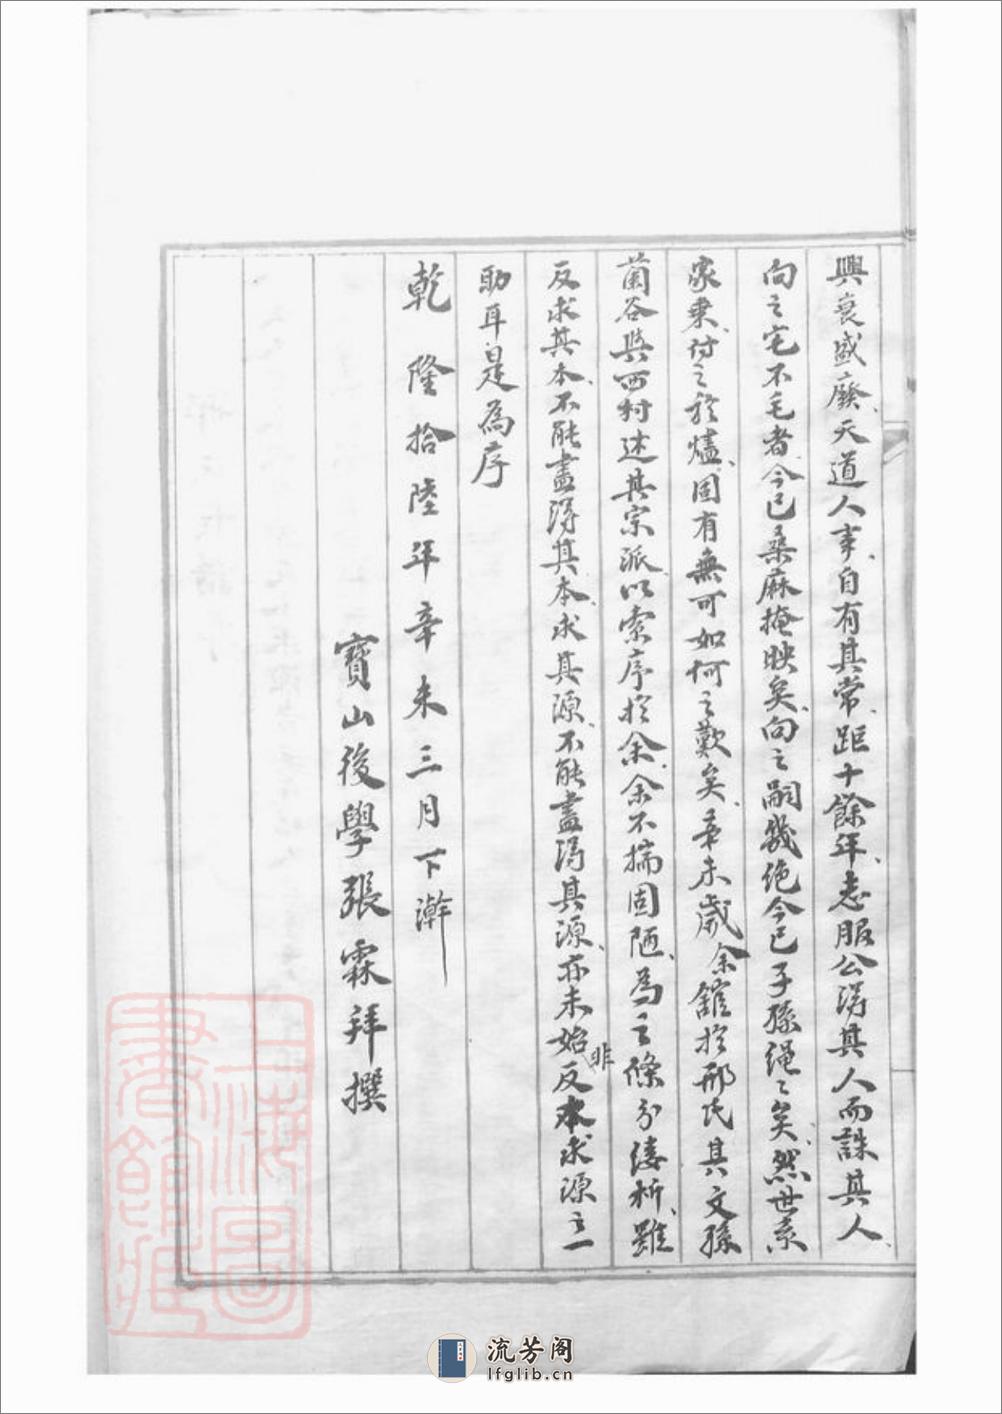 興衰盛廢、天道人事、自有其常、距十餘年、志服公得其人而誅其人、
向之宅不毛者、今已桑麻掩映矣、向之嗣幾絶今已子孫繩〻矣、然世系
家乘、付之於燼、固有無可如何之歎矣、辛未歲余館於邢氏其文孫
蘭谷與西村述其宗派以索序於余、余不揣固陋、為之條分縷析、雖
反求其本、不能盡得其本、求其源、不能盡得其源、亦未始非反本求源之一
助耳是為序
乾隆拾陸年辛未三月下澣
寶山後學張霖拜撰
上海圖書館藏
流芳阁
lfglib.cn